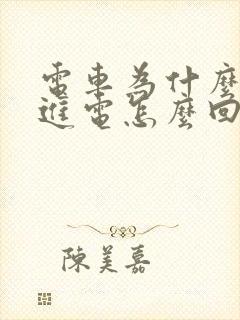 電車為什麼
進電怎麼回
陳美嘉